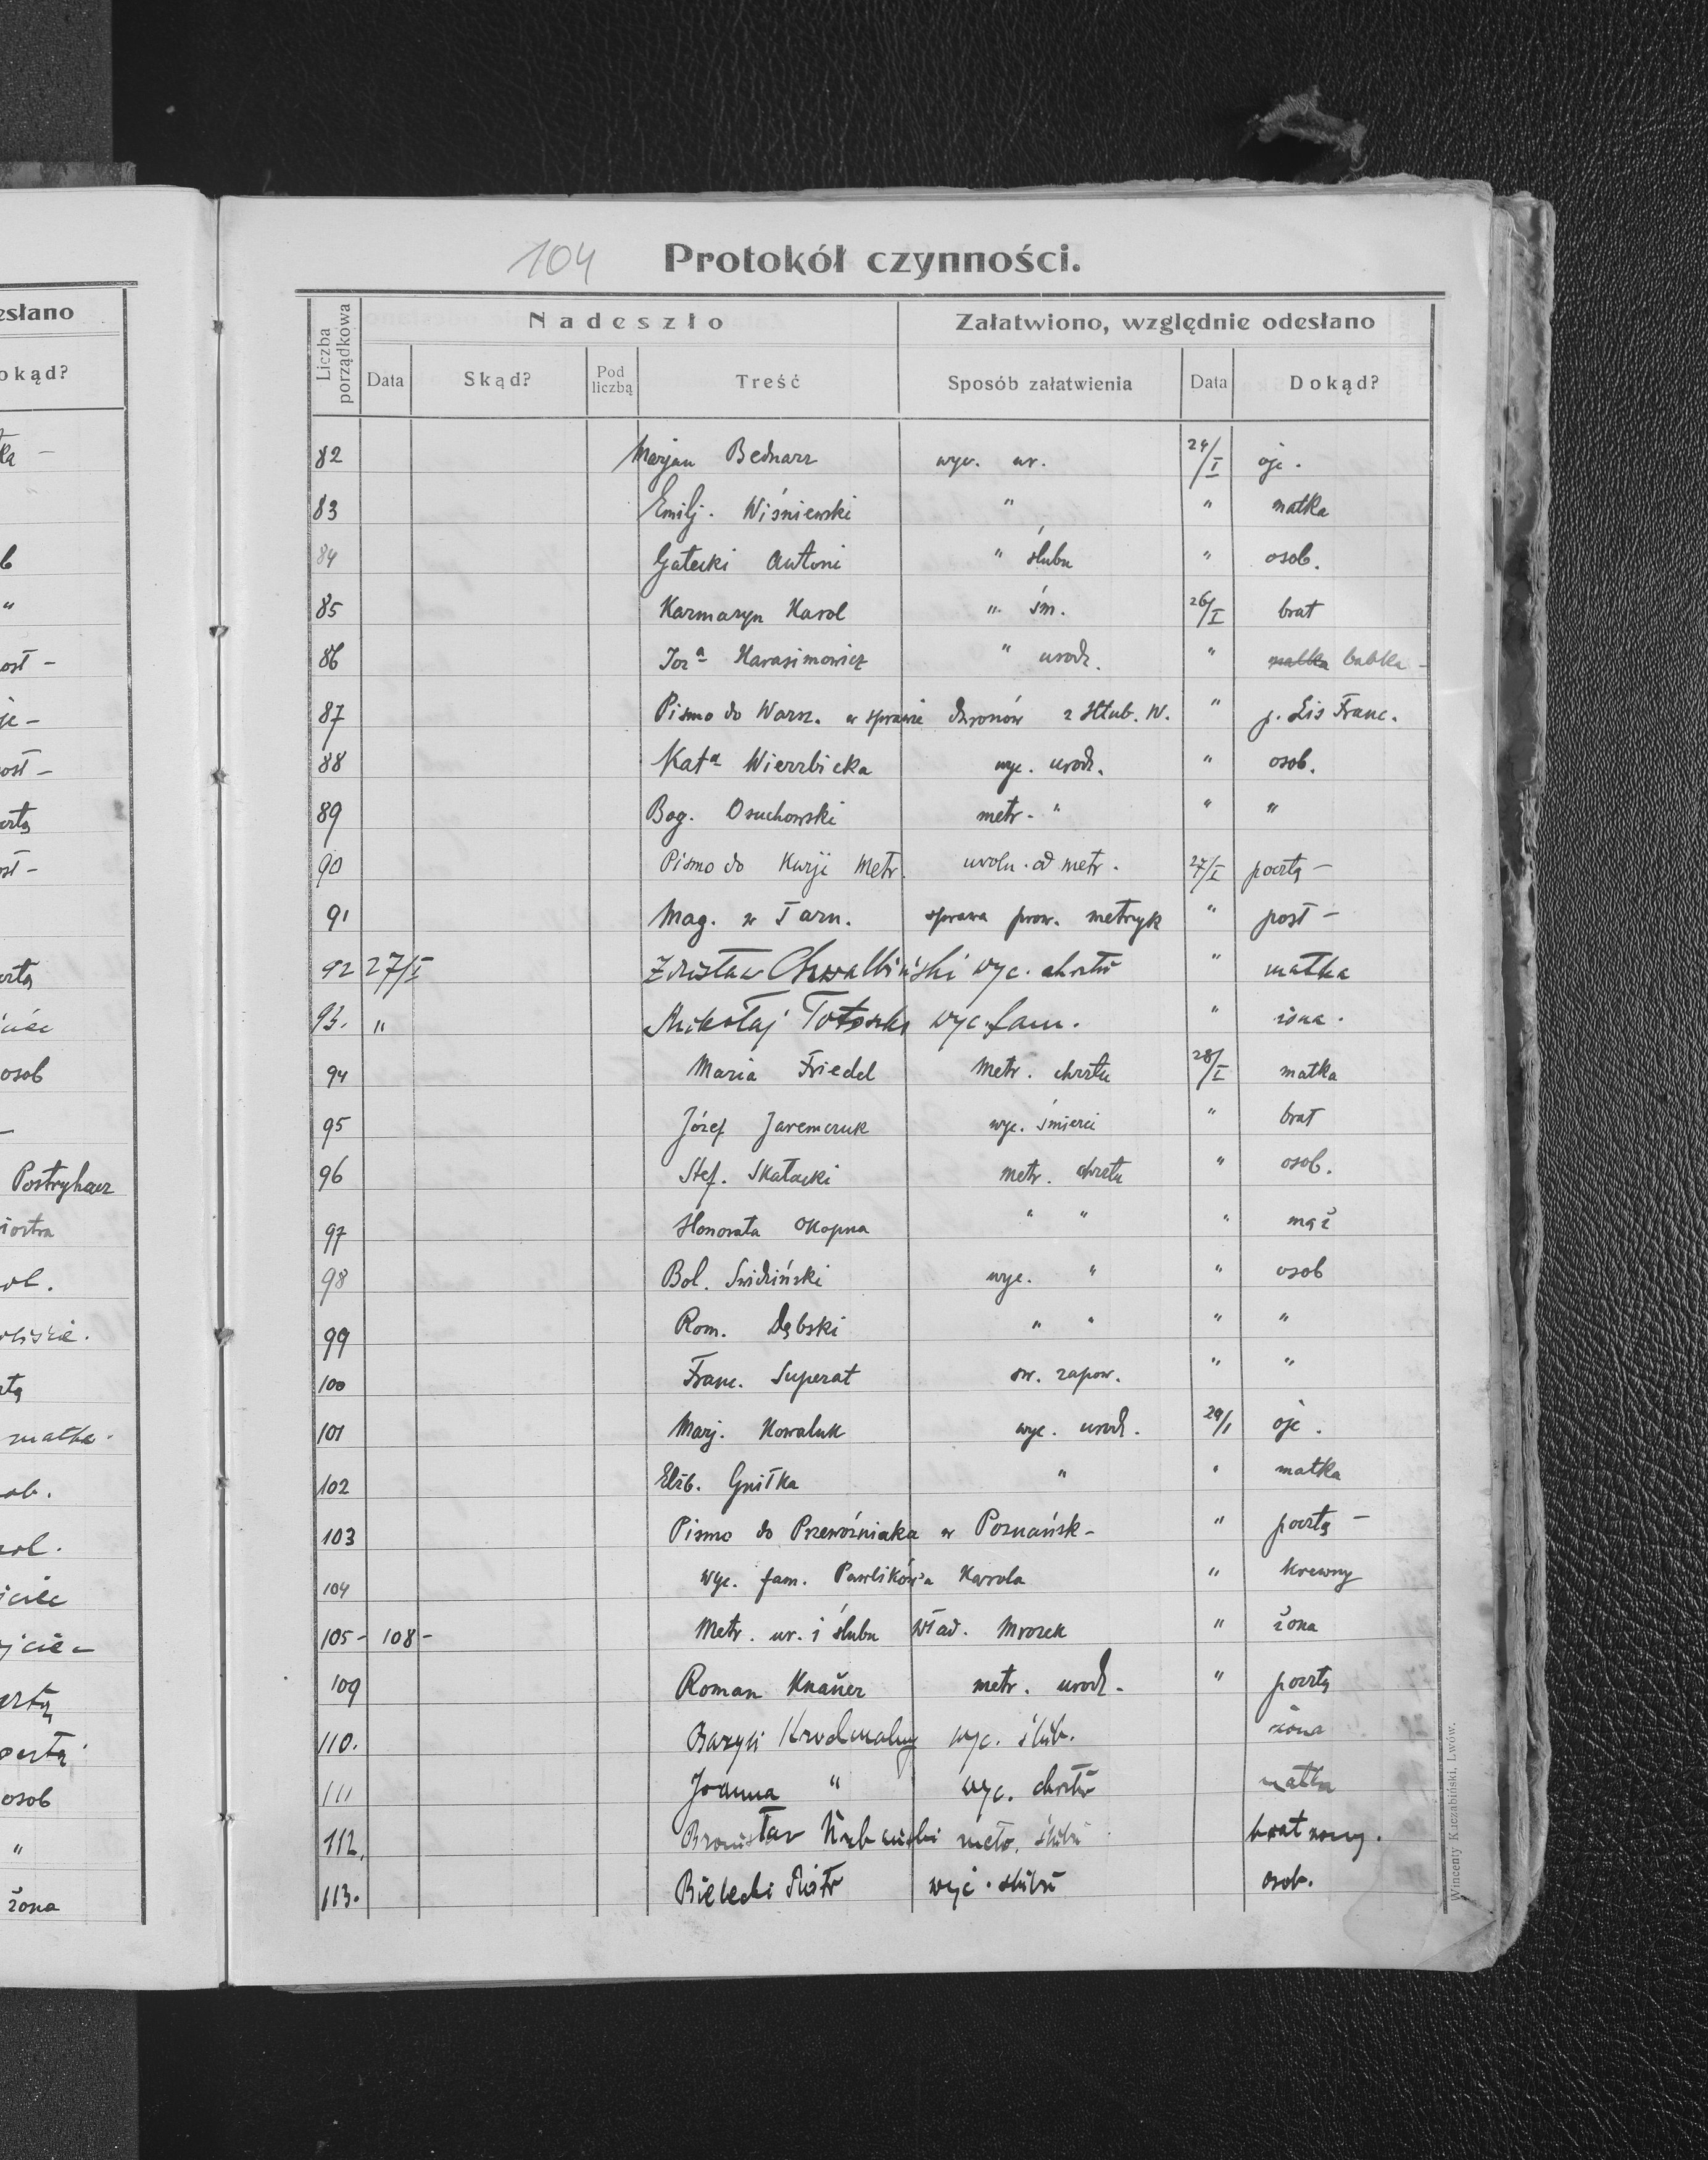 esłano
okąd?
"
ost -
je -
ost -
ertą
ost -
osob
Postryhacz
iostra
matka
ob.
osob
"
żona
104 Protokół czynności.
Liczba porządkowa
Nadeszło
Załatwiono, względnie odesłano
Data Skąd? Pod liczbą Treść Sposób załatwienia Data Dokąd?
82 Marjan Bednarz wyc. ur. 24/I ojc.
83 Emilj. Wiśniewski " " matka
84 Gałecki Antoni " ślubu " osob.
85 Karmaryn Karol " śm. 26/I brat
86 Harasimowicz " urodz. " matka babka -
87 Pismo do Warsz. w sprawie dzwonów z Hłub. W. " p. Lis Franc.
88 Kata Wierzbicka wyc. urodz. " osob.
89 Bog. Osuchowski metr. " " "
90 Pismo do Kurji Metr. uwoln. od metr. 27/I pocztą -
91 Mag. w Tarn. sprawa prow. metryk " post -
92 27/I Zdzisław Chwalbiński wyc. chrztu " matka
93. " Mikołaj wyc. fam. " żona.
94 Maria Friedel Metr. chrztu 28/I matka
95 Józef Jaremczuk wyc. śmierci " brat
96 Stef. Skałacki metr. chrztu " osob.
97 Honorata Okopna " " " mąż
98 Bol. Świdziński wyc. " " osob
99 Rom. Dębski " " " "
100 Franc. Superat św. zapow. " "
101 Marj. Kowaluk wyc. urodz. 29/I ojc.
102 Elżb. Gniłka " " matka
103 Pismo do Przewoźniaka w Poznańsk - " pocztą -
104 wyc. fam. Pawlików'a Karola " krewny
105 - 108 - Metr. ur. i ślubu Wład. Mrozek " żona
109 Roman Knauer metr. urodz. " pocztą
110. Bazyli wyc. ślub. żona
111 Joanna " wyc. chrztu matka
112. Bronisław Urbański metr. ślubu brat żony.
113. Bielecki Piotr wyc. ślubu osob.
Wincenty Kuczabiński, Lwów.